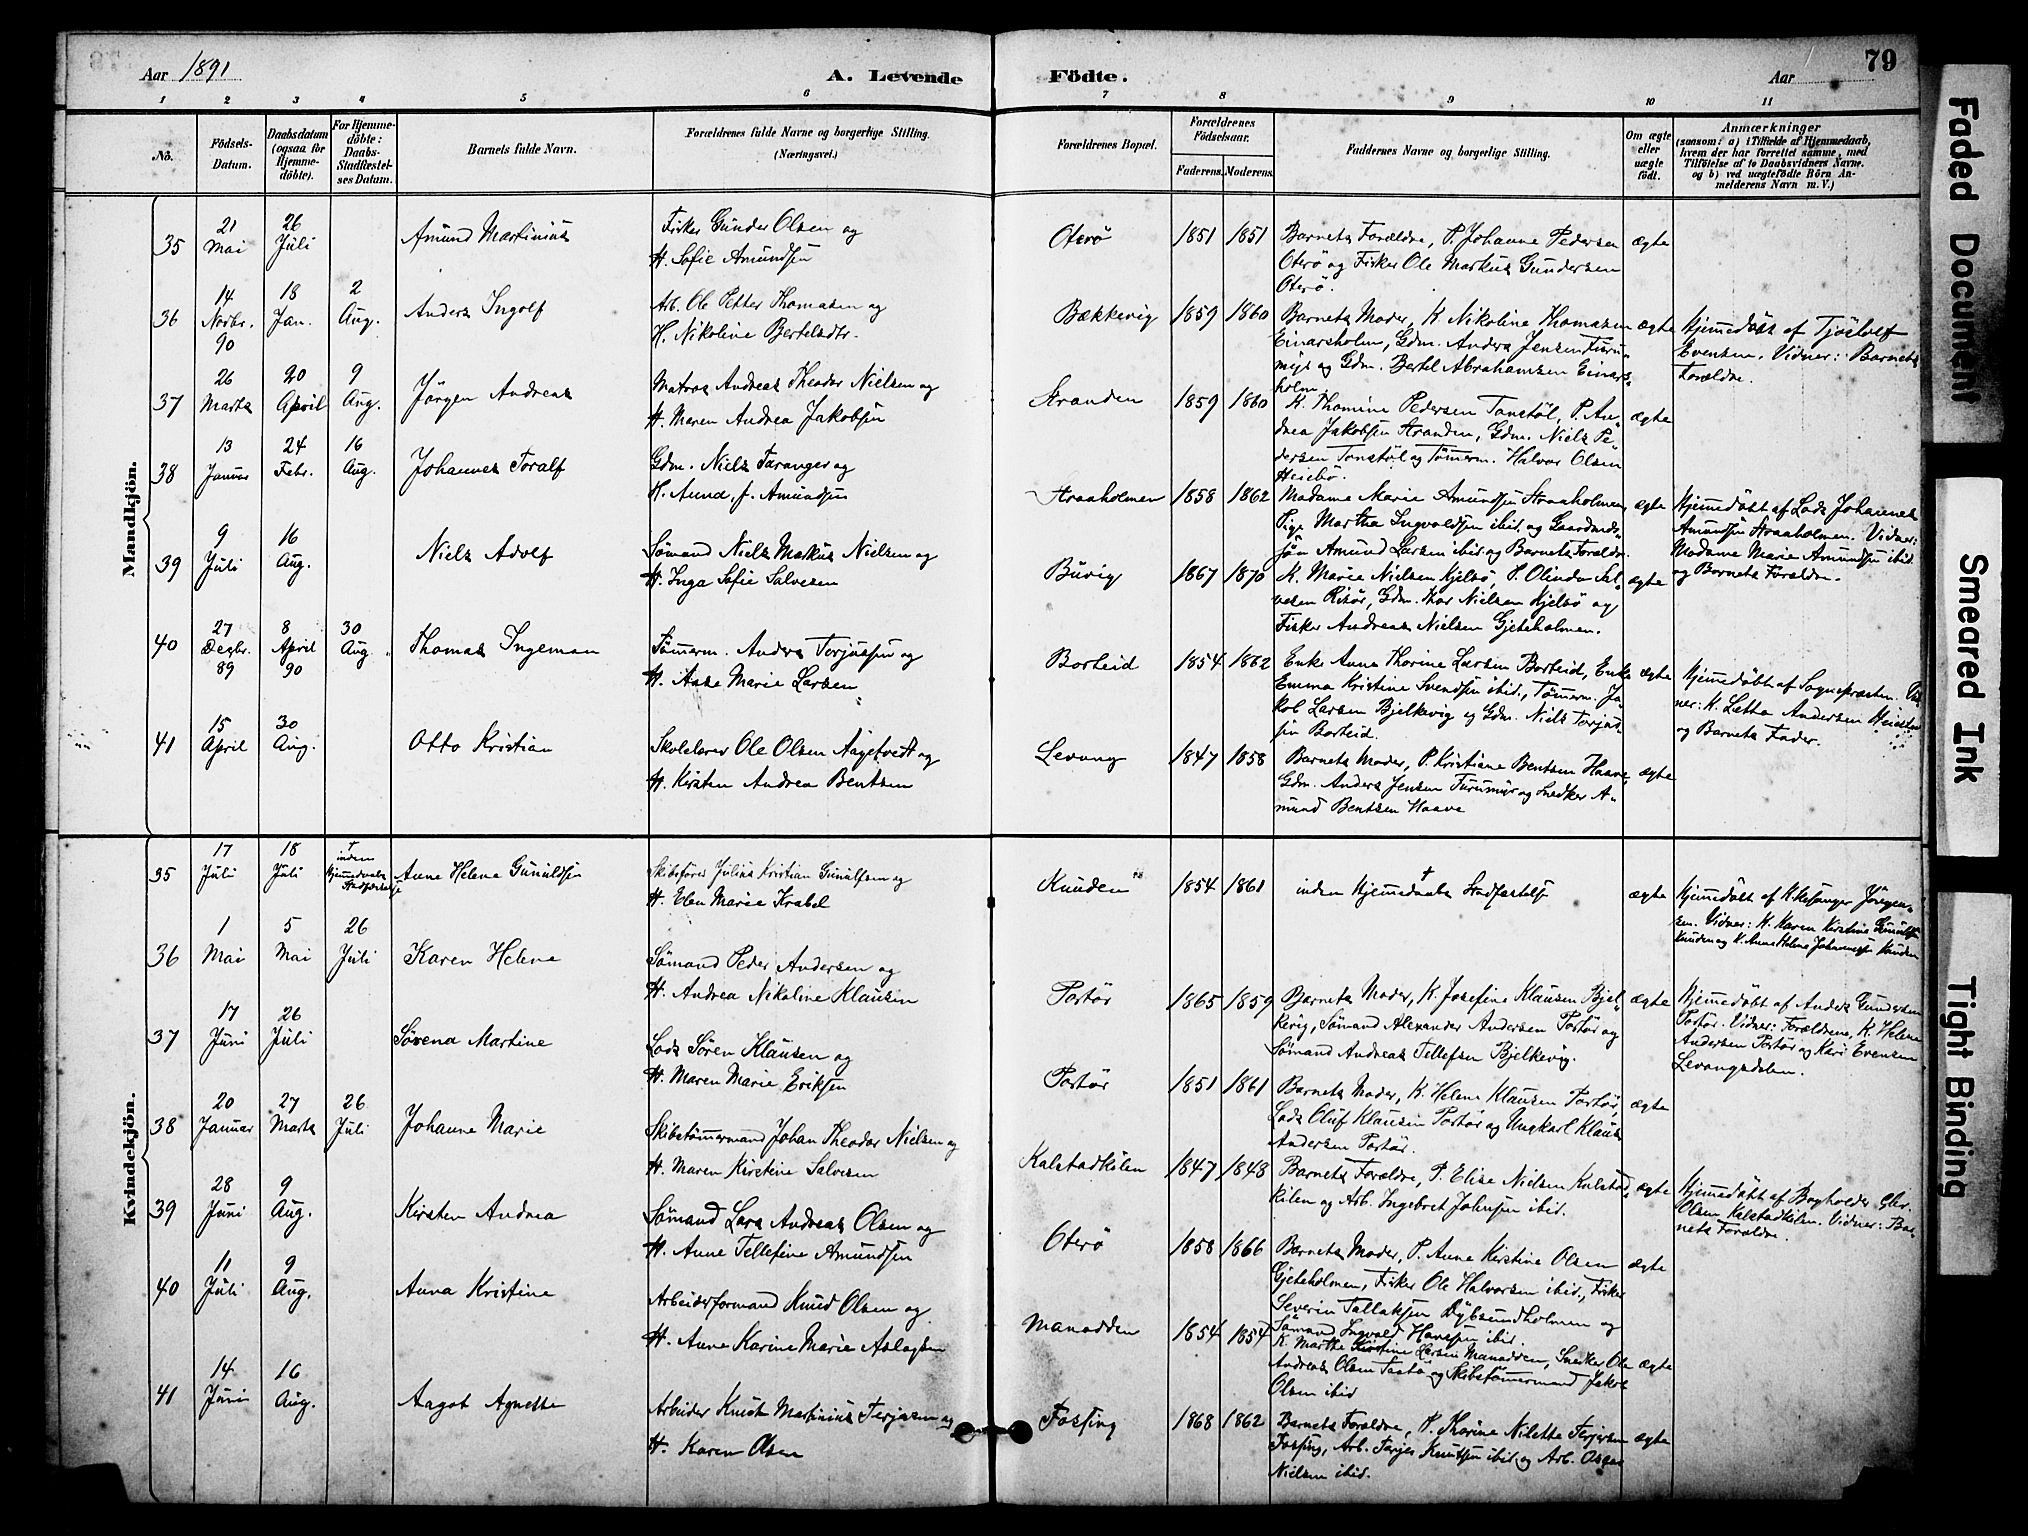 79
Aar 1891
A. Levende
Födte.
Aar
1 2 3 4 5 6 7 8 9 10 11
No.
Födsels-
Datum.
Daabsdatum
(ogsaa for
Hjemme-
döbte).
For Hjemme-
döbte:
Daabs-
Stadfæstel-
ses Datum.
Barnets fulde Navn.
Forældrenes fulde Navne og borgerlige Stilling.
(Næringsvei.)
Forældrenes Bopæl.
Forældrenes
Födselsaar.
Faderens. Moderens.
Faddernes Navne og borgerlige Stilling.
Om ægte
eller
uægte
födt.
Anmærkninger
(saasom: a) i Tilfælde af Hjemmedaab,
hvem der har forrettet samme, med
Tilföielse af to Daabsvidners Navne.
og b) ved uægtefödte Börn An-
melderens Navn m. V.)
Mandkjön.
35
21
Mai
26
Juli
Amund Martinius
Fisker Gunder Olsen og
H. Sofie Amundsen
Oterö
1851 1851
Barnets Forældre, P. Johanne Pedersen
Oterö og Fisker Ole Markus Gundersen
Oterö.
ægte
36
14
Novbr.
90
18
Jan.
2
Aug.
Anders Ingolf
Arb. Ole Petter Thomassen og
H. Nikoline Bertelsdtr.
Bækkevig
1859 1860
Barnets Moder, K. Nikoline Thomasen
Einarsholm, Gdm. Anders Jensen Furu-
myr og Gdm. Bertel Abrahamsen Einars-
holm.
ægte
Hjemmedöbt af Tjöstolf
Evensen. Vidner: Barnets
Forældre.
37
26
Marts
20
April
9
Aug.
Jörgen Andreas
Matros Andreas Theodor Nielsen og
H. Maren Andrea Jakobsen
Stranden
1859 1860
K. Thomine Pedersen Tonstöl, P. An-
drea Jakobsen Stranden, Gdm. Niels Pe-
dersen Tonstöl og Tömerm. Halvor Olsen
Heisebö.
ægte
38
13
Januar
24
Febr.
16
Aug.
Johannes Toralf
Gdm. Niels Taranger og
H. Aund. f. Amundsen
Straaholmen
1858 1862
Madame Marie Amundsen Straaholmen,
Pige Martha Ingvoldsen ibid. og Gaardmds-
sön Amund Larsen ibid. og Barnets Forældre.
ægte
Hjemmedöbt af Lods Johannes
Amundsen Straaholmen. Vidner:
Madame Marie Amundsen ibid.
og Barnets Forældre.
39
9
Juli
16
Aug.
Niels Adolf
Sömand Niels Markus Nielsen og
H. Inga Sofie Salvesen
Buvig
1867 1870
K. Marie Nielsen Kjelsö, P. Olinda Sal-
vesen Risör, Gdm. Thor Nielsen Kjelsö og
Fisker Andreas Nielsen Gjeteholmen.
ægte
40
27
Decbr.
89
8
April
90
30
Aug.
Thomas Ingeman
Tömerm. Anders Terjussen og
H. Anne Marie Larsen
Borteid
1854 1862
Enke Anne Thorine Larsen Borteid, Enke
Emma Kristine Svendsen ibid., Tömerm. Ja-
kob Larsen Bjelkevig og Gdm. Niels Terjus-
sen Borteid.
ægte
Hjemmedöbt af Sognepræsten. Vid-
ner: K. Lætha Andersen
og Barnets Fader.
41
15
April
30
Aug.
Otto Kristian
Skolelærer Ole Olsen Aagetvedt og
H. Kirsten Andrea Bentsen
Levang
1847 1858
Barnets Moder, P. Kristiane Bentsen Haave,
Gdm. Anders Jensen Furumyr og Snedker A-
mund Bentsen Haave
ægte
Kvindekjön.
35
17
Juli
18
Juli
†
inden
Hjemmedaabs
Stadfæstelse
Anne Helene Gunuldsen
Skibsförer Julius Kristian Gunulfsen og
H. Elen Marie Krabel
Knuden
1854 1861
† inden Hjemmedaabs Stadfæstelse
ægte
Hjemmedöbt af Kirkesanger Jörgen-
sen. Vidner: K. Karen Kirstine Gunulfsen
Knuden og K. Anne Helene Johannessen Knuden
36
1
Mai
5
Mai
26
Juli
Karen Helene
Sömand Peder Andersen og
H. Andrea Nikoline Klausen
Portör
1865 1859
Barnets Moder, K. Josefine Klausen Bjel-
kevig, Sömand Alexander Andersen Portör og
Sömand Andreas Tellefsen Bjelkevig.
ægte
Hjemmedöbt af Anders Gundersen
Portör. Vidner: Forældrene, K. Helene
Andersen Portör og Kari Evensen
Levangsdalen.
37
17
Juni
26
Juli
Sörena Martine
Lods Sören Klausen og
H. Maren Marie Eriksen
Portör
1851 1861
Barnets Moder, K. Helene Klausen Portör,
Lods Oluf Klausen Portör og Ungkarl Klaus
Andersen Portör.
ægte
38
20
Januar
27
Marts
26
Juli
Johanne Marie
Skibstömermand Johan Theodor Nielsen og
H. Maren Kirstine Salvesen
Kalstadkilen
1847 1848
Barnets Forældre, P. Elise Nielsen Kalstad-
kilen og Arb. Ingebret Johnsen ibid.
ægte
Hjemmedöbt af Bogholder Glor.
Olsen Kalstadkilen. Vidner: Bar-
nets Forældre.
39
28
Juni
9
Aug.
Kirsten Andrea
Sömand Lars Andreas Olsen og
H. Anne Tellefine Amundsen
Oterö
1858 1866
Barnets Moder, P. Anne Kirstine Olsen
Gjeteholmen, Fisker Ole Halvorsen ibid., Fisker
Severin Tallaksen Dybsundholmen og
Sömand Ingvald Hansen ibid.
ægte
40
11
Juli
9
Aug.
Anna Kristine
Arbeiderformand Knud Olsen og
H. Anne Karine Marie Aslagsen
Manodden
1854 1854
K. Marthe Kirstine Larsen Manodden, Snedker Ole
Andreas Olsen Tastö og Skibstömermand Jakob
Olsen ibid.
ægte
41
14
Juni
16
Aug.
Aagot Agnette
Arbeider Knut Martinius Terjesen og
H. Karen Olsen
Fossing
1868 1862
Barnets Forældre, P. Thorine Nilette Terjesen
Fossing, Arb. Terjes Knutsen ibid. og Arb. Oscar
Nielsen ibid.
ægte
Faded Document
Smeared Ink
Tight Binding